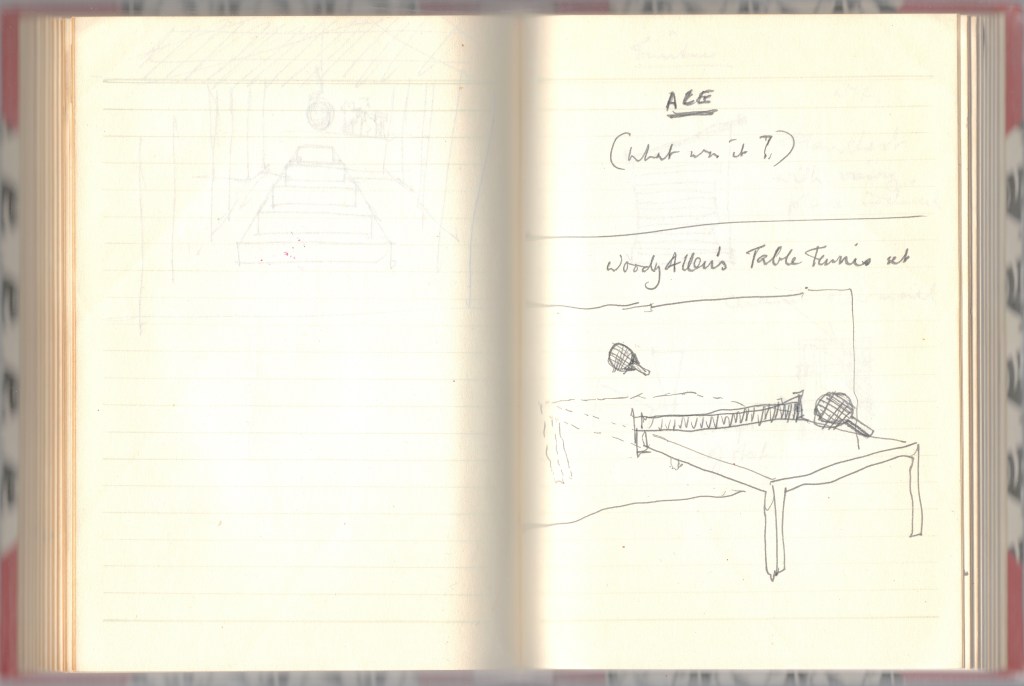 ACE
(What was it?)
Woody Allen's Table Tennis set